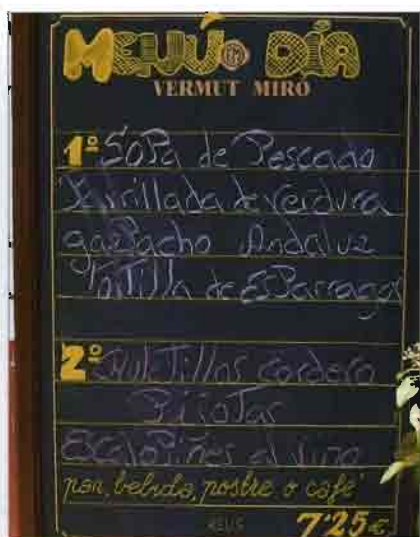 MENÚ DÍA
VERMUT MIRÓ
1º Sopa de Pescado
Parrillada de Verdura
gaspacho Andaluz
Tortilla de Esparragos
2º Chuletillas cordero
Escalopines al vino
pan, bebida, postre o café
REUS 7'25 €